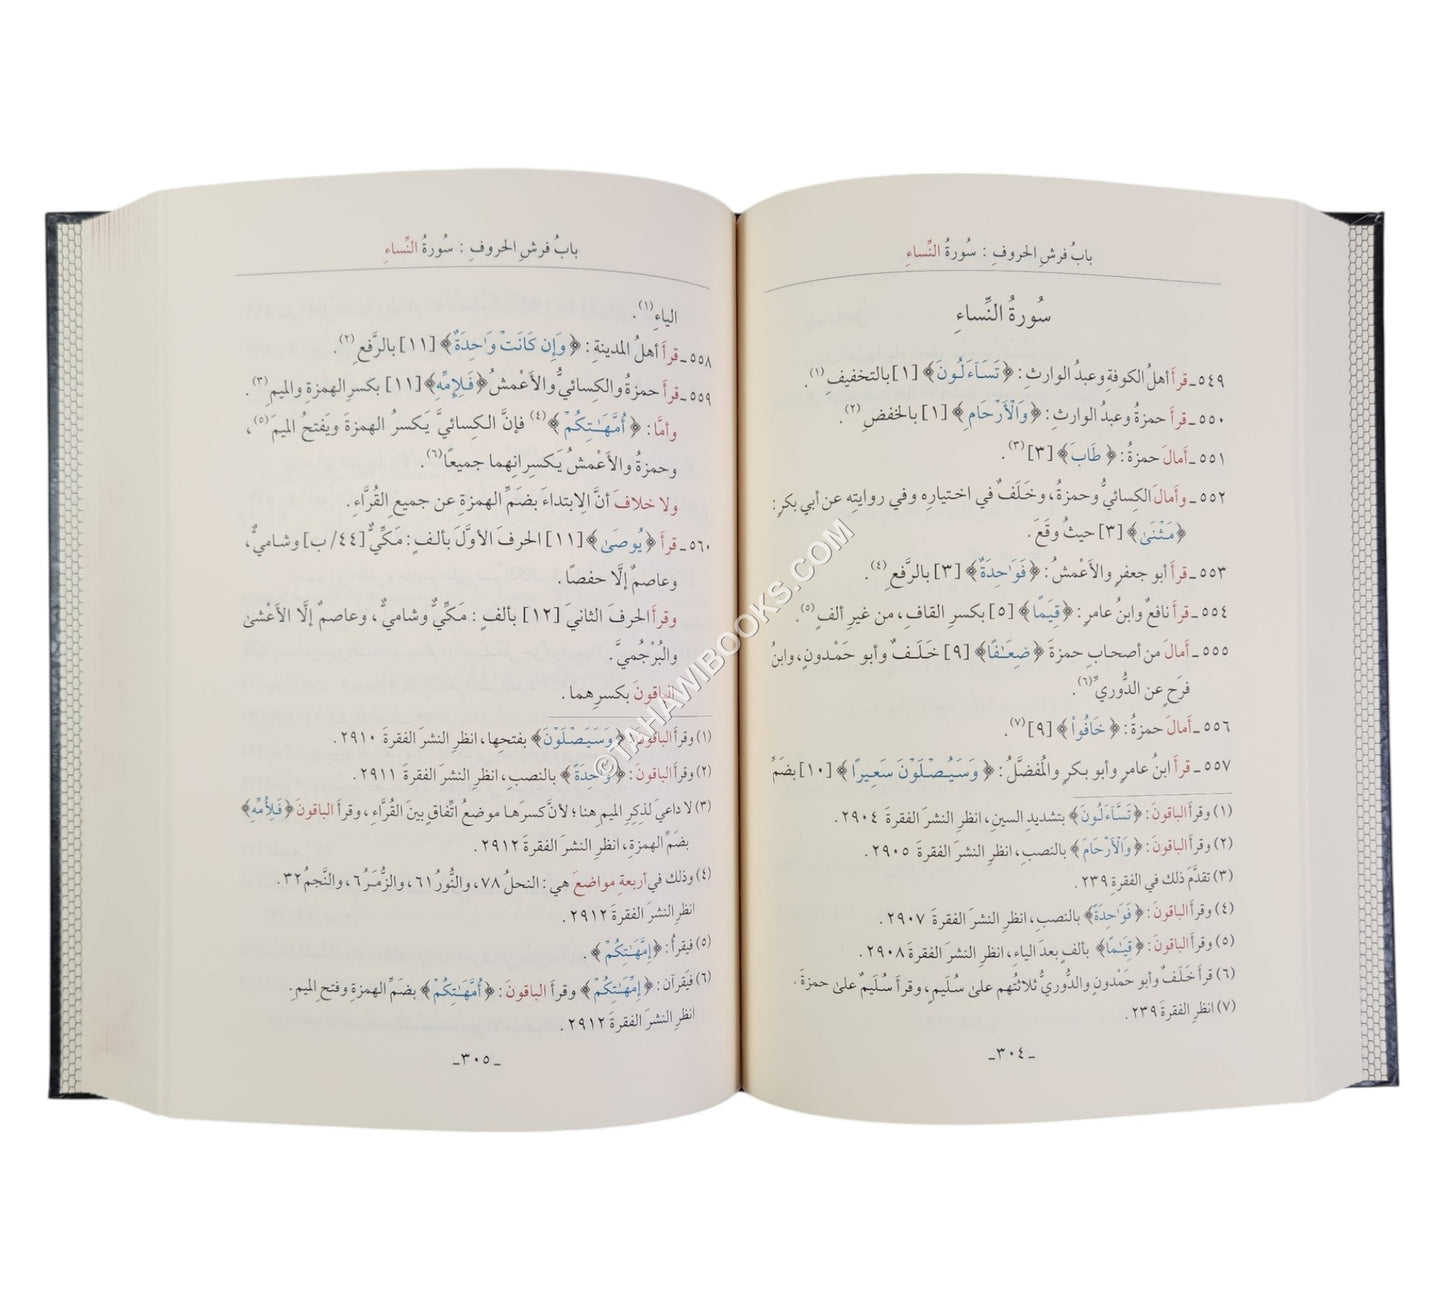 بابُ فرشِ الحروفِ : سُورةُ النِّساءِ
سُورةُ النِّساءِ
٥٤٩ـ قرأَ أهلُ الكوفة وعبدُ الوارثِ: ﴿تَسَآءَلُونَ﴾ [١] بالتخفيفِ(١).
٥٥٠ـ قرأَ حمزةُ وعبدُ الوارثِ: ﴿وَٱلۡأَرۡحَامِ﴾ [١] بالخفضِ(٢).
٥٥١ـ أمالَ حمزةُ: ﴿طَابَ﴾ [٣](٣).
٥٥٢ـ وأمالَ الكِسائيُّ وحمزةُ، وخَلَفٌ في اختيارِه وفي روايتِه عن أبي بكرٍ:
﴿مَثۡنَىٰ﴾ [٣] حيثُ وقَعَ.
٥٥٣ـ قرأَ أبو جعفرٍ والأعْمشُ: ﴿فَوَٰحِدَةٌ﴾ [٣] بالرَّفعِ(٤).
٥٥٤ـ قرأَ نافعٌ وابنُ عامرٍ: ﴿قِيَمًا﴾ [٥] بكسرِ القافِ، من غيرِ ألفٍ(٥).
٥٥٥ـ أمالَ من أصحابِ حمزةَ ﴿ضِعَٰفًا﴾ [٩] خَلَفٌ وأبو حَمْدونٍ، وابنُ
فَرَحٍ عن الدُّوريِّ(٦).
٥٥٦ـ أمالَ حمزةُ: ﴿خَافُواْ﴾ [٩](٧).
٥٥٧ـ قرأَ ابنُ عامرٍ وأبو بكرٍ والمُفضَّلُ: ﴿وَسَيُصۡلَوۡنَ سَعِيرًا﴾ [١٠] بضَمِّ
(١) وقرأَ الباقونَ: ﴿تَسَّآءَلُونَ﴾ بتشديدِ السينِ، انظرِ النشرَ الفقرةَ ٢٩٠٤.
(٢) وقرأَ الباقونَ: ﴿وَٱلۡأَرۡحَامَ﴾ بالنصبِ، انظرِ النشرَ الفقرةَ ٢٩٠٥.
(٣) تقدَّمَ ذلك في الفقرةِ ٢٣٩.
(٤) وقرأَ الباقونَ: ﴿فَوَٰحِدَةً﴾ بالنصبِ، انظرِ النشرَ الفقرةَ ٢٩٠٧.
(٥) وقرأَ الباقونَ: ﴿قِيَٰمًا﴾ بألفٍ بعدَ الياءِ، انظرِ النشرَ الفقرةَ ٢٩٠٨.
(٦) قرأَ خَلَفٌ وأبو حَمْدونٍ والدُّوريُّ ثلاثتُهم علىٰ سُلَيمٍ، وقرأَ سُلَيمٌ علىٰ حمزةَ.
(٧) انظرِ الفقرةَ ٢٣٩.
ـ ٣٠٤ ـ
بابُ فرشِ الحروفِ : سُورةُ النِّساءِ
الياءِ(١).
٥٥٨ـ قرأَ أهلُ المدينةِ: ﴿وَإِن كَانَتۡ وَٰحِدَةٌ﴾ [١١] بالرَّفعِ(٢).
٥٥٩ـ قرأَ حمزةُ والكِسائيُّ والأعْمشُ ﴿فَلِإِمِّهِ﴾ [١١] بكسرِ الهمزةِ والميمِ(٣).
وأمَّا: ﴿أُمَّهَٰتِكُمۡ﴾(٤) فإنَّ الكِسائيَّ يَكسرُ الهمزةَ ويَفتحُ الميمَ(٥)،
وحمزةُ والأعْمشُ يَكسِرانِهما جميعًا(٦).
ولا خلافَ أنَّ الِابتداءَ بضَمِّ الهمزةِ عن جميعِ القُرَّاءِ.
٥٦٠ـ قرأَ ﴿يُوصَىٰ﴾ [١١] الحرفَ الأوَّلَ بألفٍ: مَكِّيٌّ [٤٤/ب] وشاميٌّ،
وعاصمٌ إلَّا حفصًا.
وقرأَ الحرفَ الثانيَ [١٢] بألفٍ: مَكِّيٌّ وشاميٌّ، وعاصمٌ إلَّا الأعْشىٰ
والبُرْجُميَّ.
الباقونَ بكسرِهما.
(١) وقرأَ الباقونَ: ﴿وَسَيَصۡلَوۡنَ﴾ بفتحِها، انظرِ النشرَ الفقرةَ ٢٩١٠.
(٢) وقرأَ الباقونَ: ﴿وَٰحِدَةً﴾ بالنصبِ، انظرِ النشرَ الفقرةَ ٢٩١١.
(٣) لا داعيَ لذِكرِ الميمِ هنا؛ لأنَّ كسرَها موضعُ اتِّفاقٍ بينَ القُرَّاءِ، وقرأَ الباقونَ ﴿فَلِأُمِّهِ﴾
بضَمِّ الهمزةِ، انظرِ النشرَ الفقرةَ ٢٩١٢.
(٤) وذلك في أربعةِ مواضعَ هي: النحلُ ٧٨، والنُّورُ ٦١، والزُّمَرُ ٦، والنَّجمُ ٣٢.
انظرِ النشرَ الفقرةَ ٢٩١٢.
(٥) فيَقرأُ: ﴿إِمَّهَٰتِكُمۡ﴾.
(٦) فيَقرآنِ: ﴿إِمِّهَٰتِكُمۡ﴾ وقرأَ الباقونَ: ﴿أُمَّهَٰتِكُمۡ﴾ بضَمِّ الهمزةِ وفتحِ الميمِ.
انظرِ النشرَ الفقرةَ ٢٩١٢.
ـ ٣٠٥ ـ
©TAHAWIBOOKS.COM